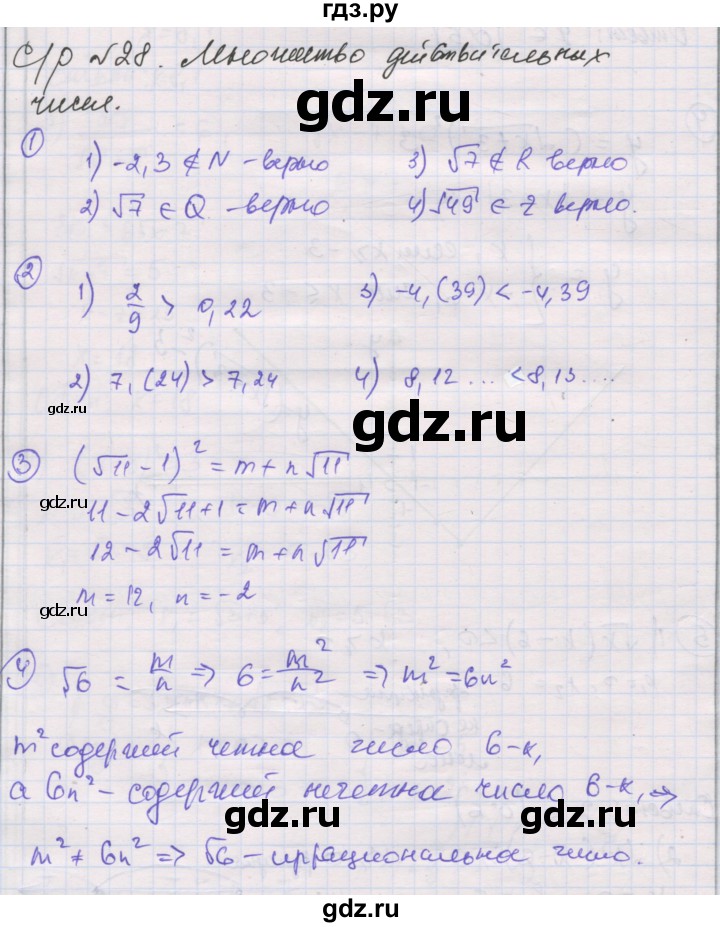 гдз.ру
С/р №28. Множество действительных
чисел.
gdz.ru
① 1) -2,3 ∉ N - верно 3) √7 ∉ R верно
2) √7 ∈ Q - верно 4) √49 ∈ Z верно.
② 1) 2/9 > 0,22 3) -4,(39) < -4,39
2) 7,(24) > 7,24 4) 8,12... < 8,13....
gdz.ru
gdz.ru
③ (√11 - 1)² = m + n√11
gdz.ru
11 - 2√11 + 1 = m + n√11
12 - 2√11 = m + n√11
m = 12, n = -2
gdz.ru
gdz.ru
④ √6 = m/n => 6 = m²/n² => m² = 6n²
m² содержит четное число 6-к,
а 6n² - содержит нечетное число 6-к, =>
gdz.ru
gdz.ru
m² ≠ 6n² => √6 - иррациональное число.
gdz.ru